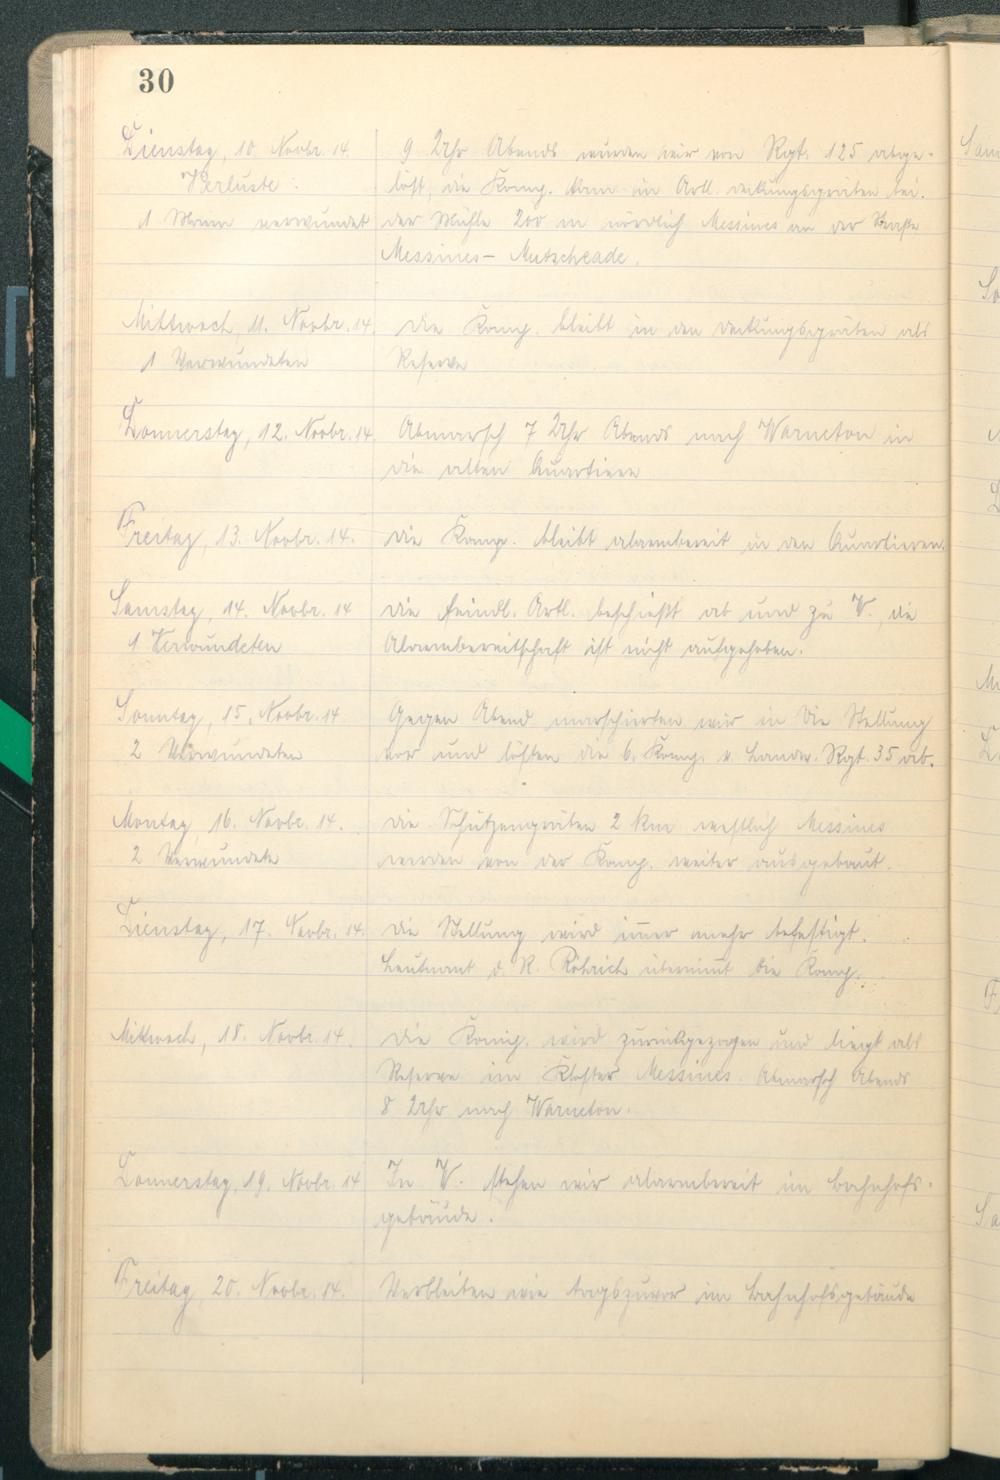 30
Dienstag, 10. Novbr. 14.
Verluste:
1 Mann verwundet
9 Uhr Abends wurden wir von Rgt. 125 abge-
löst, die Komp. kam in Artl. deckungsgräben bei
der Mühle 200 m nördlich Messines an der Straße
Messines –
Mittwoch, 11. Novbr. 14
1 Verwundeten
Die Komp. bleibt in den Deckungsgräben als
Reserve
Donnerstag, 12. Novbr. 14
Abmarsch 7 Uhr Abends nach Warneton in
die alten Quartiere
Freitag, 13. Novbr. 14.
Die Komp. bleibt alarmbereit in den Quartieren.
Samstag, 14. Novbr. 14
1 Verwundeten
Die feindl. Artl. beschießt ab und zu W. die
Alarmbereitschaft ist nicht aufgehoben.
Sonntag, 15. Novbr. 14
2 Verwundeten
Gegen Abend marschierten wir in die Stellung
vor und lösten die 6. Komp. v. Landw. Rgt. 35 ab.
Montag 16. Novbr. 14.
2 Verwundete
Die Schützengräben 2 km westlich Messines
werden von der Komp. weiter ausgebaut.
Dienstag, 17. Novbr. 14.
Die Stellung wird im̅er mehr befestigt.
Leutnant d. R. Röhrich übernim̅t die Komp.
Mittwoch, 18. Novbr. 14.
Die Komp. wird zurückgezogen und liegt als
Reserve im Kloster Messines. Abmarsch Abends
8 Uhr nach Warneton.
Donnerstag, 19. Novbr. 14
In W. stehen wir alarmbereit im Bahnhofs-
gebäude.
Freitag 20. Novbr. 14.
Verbleiben wie tagszuvor im Bahnhofsgebäude